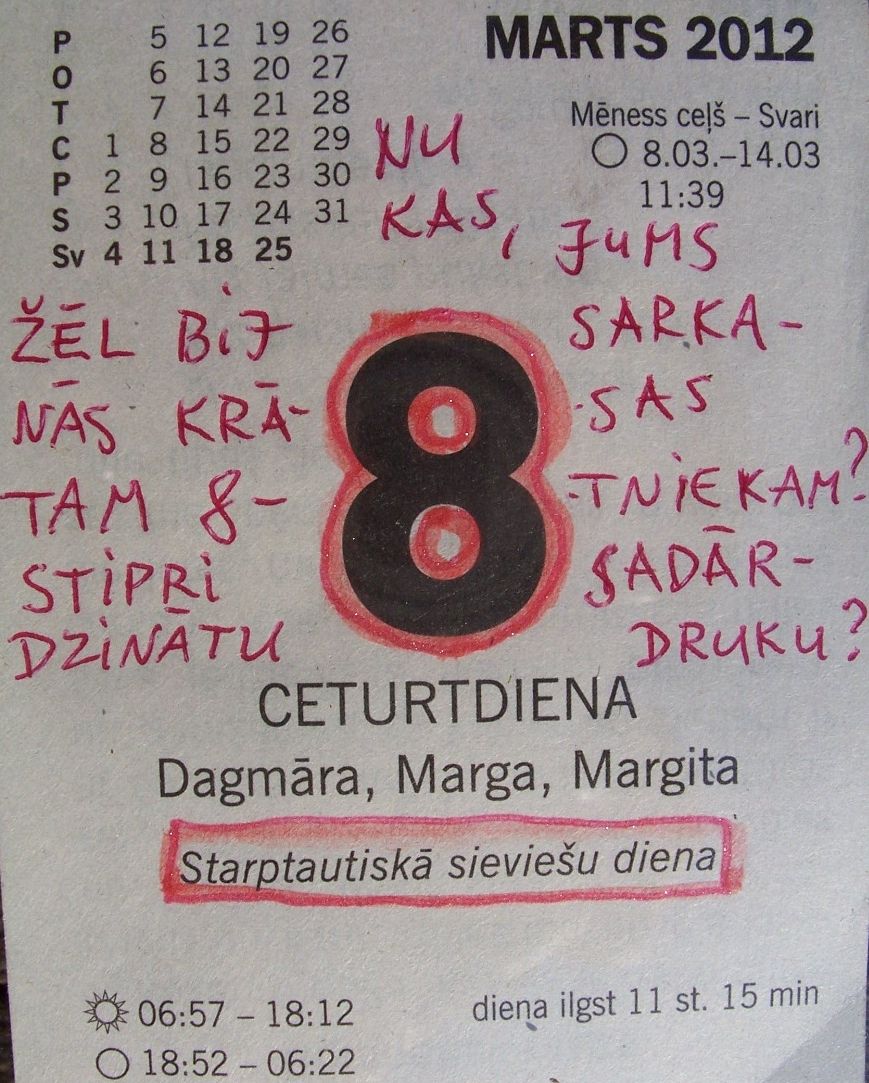 MARTS 2012
P 5 12 19 26
O 6 13 20 27
T 7 14 21 28
C 1 8 15 22 29
P 2 9 16 23 30
S 3 10 17 24 31
Sv 4 11 18 25
Mēness ceļš – Svari
8.03.–14.03
11:39
NU
KAS, JUMS
ŽĒL BIJ SARKA-
NĀS KRĀ- -SAS
TAM 8- -TNIEKAM?
STIPRI SADĀR-
DZINĀTU DRUKU?
8
CETURTDIENA
Dagmāra, Marga, Margita
Starptautiskā sieviešu diena
06:57 – 18:12
diena ilgst 11 st. 15 min
18:52 – 06:22